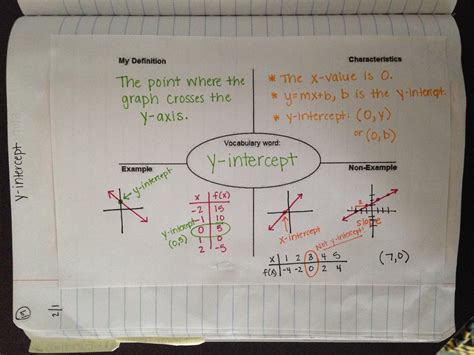 My Definition
The point where the
graph crosses the
y-axis.
Characteristics
* The x-value is 0.
* y=mx+b, b is the y-intercept.
* y-intercept: (0,y)
or (0,b)
Vocabulary word:
y-intercept
Example
y-intercept
x | f(x)
-2 | 15
-1 | 10
0 | 5
1 | 0
2 | -5
y-intercept
(0,5)
Non-Example
x-intercept
slope
Not y-intercept
x | 1 2 3 4 5
f(x) | -4 -2 0 2 4
(7,0)
y-intercept